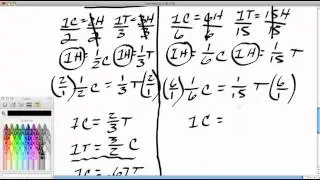 1C = 2H 1T = 3H
2 2 3 3
1H = 1/2 C 1H = 1/3 T
(2/1) 1/2 C = 1/3 T (2/1)
1C = 2/3 T
1T = 3/2 C
1C = .67T
1C = 6H 1T = 15H
6 6 15 15
1H = 1/6 C 1H = 1/15 T
(6/1) 1/6 C = 1/15 T (6/1)
1C =